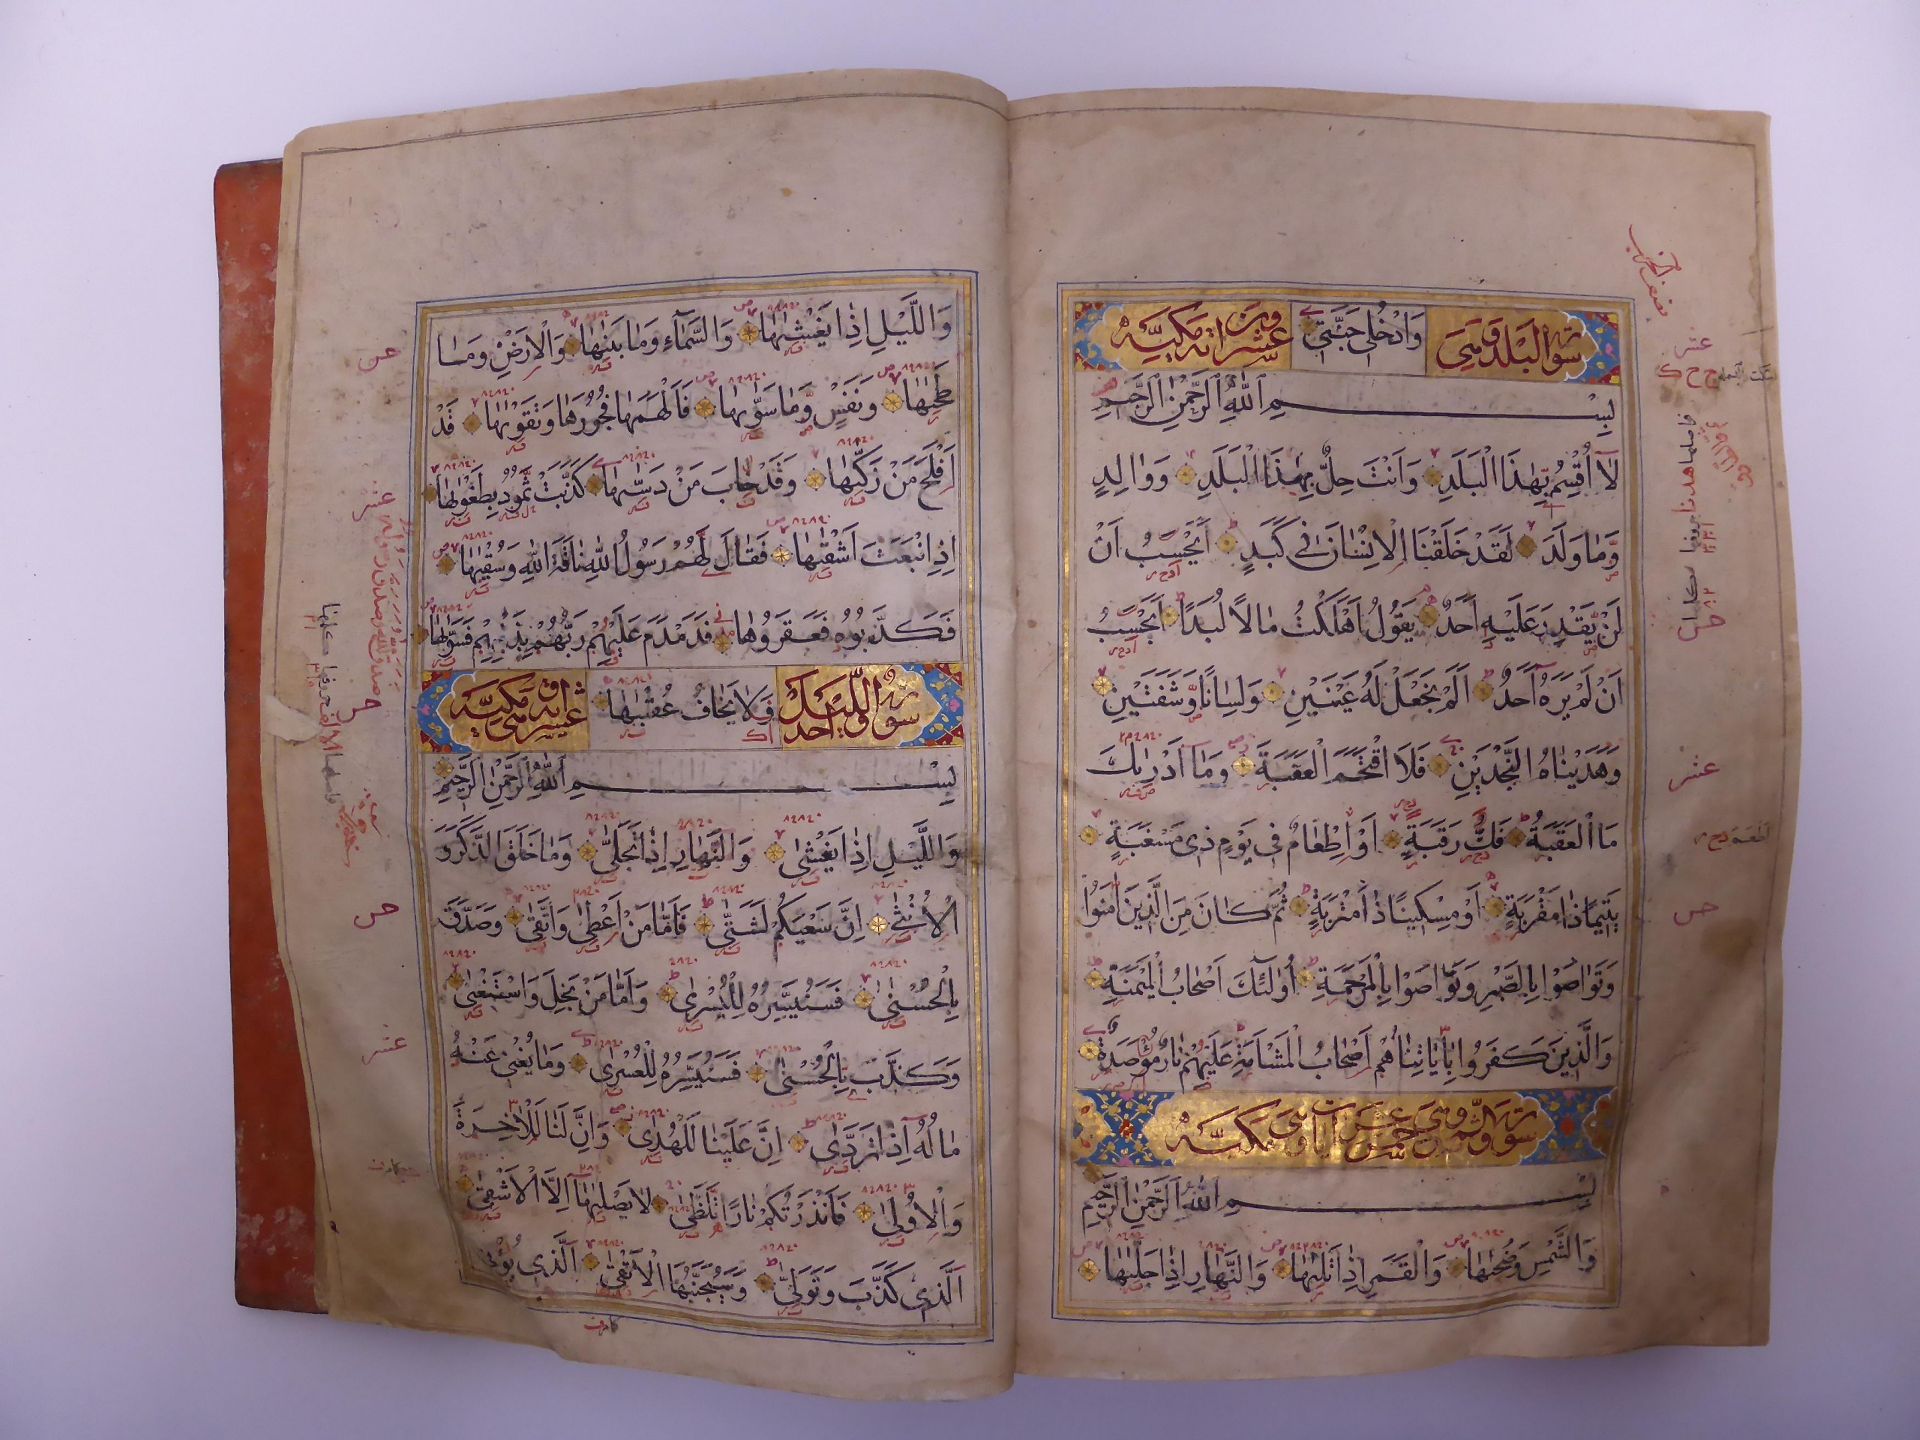 سورة البلد وهي
وَادْخُلِي جَنَّتِي
عشرون اية مكية
بِسْمِ اللَّهِ الرَّحْمٰنِ الرَّحِيمِ
لَا أُقْسِمُ بِهٰذَا الْبَلَدِ وَأَنْتَ حِلٌّ بِهٰذَا الْبَلَدِ وَوَالِدٍ
وَمَا وَلَدَ لَقَدْ خَلَقْنَا الْإِنْسَانَ فِي كَبَدٍ أَيَحْسَبُ أَنْ
لَنْ يَقْدِرَ عَلَيْهِ أَحَدٌ يَقُولُ أَهْلَكْتُ مَالًا لُبَدًا أَيَحْسَبُ
أَنْ لَمْ يَرَهُ أَحَدٌ أَلَمْ نَجْعَلْ لَهُ عَيْنَيْنِ وَلِسَانًا وَشَفَتَيْنِ
وَهَدَيْنَاهُ النَّجْدَيْنِ فَلَا اقْتَحَمَ الْعَقَبَةَ وَمَا أَدْرٰىكَ
مَا الْعَقَبَةُ فَكُّ رَقَبَةٍ أَوْ إِطْعَامٌ فِي يَوْمٍ ذِي مَسْغَبَةٍ
يَتِيمًا ذَا مَقْرَبَةٍ أَوْ مِسْكِينًا ذَا مَتْرَبَةٍ ثُمَّ كَانَ مِنَ الَّذِينَ اٰمَنُوا
وَتَوَاصَوْا بِالصَّبْرِ وَتَوَاصَوْا بِالْمَرْحَمَةِ أُولٰئِكَ أَصْحَابُ الْمَيْمَنَةِ
وَالَّذِينَ كَفَرُوا بِاٰيَاتِنَا هُمْ أَصْحَابُ الْمَشْأَمَةِ عَلَيْهِمْ نَارٌ مُؤْصَدَةٌ
سورة والشمس وهي خمس عشرة آيات وهي مكية
بِسْمِ اللَّهِ الرَّحْمٰنِ الرَّحِيمِ
وَالشَّمْسِ وَضُحٰىهَا وَالْقَمَرِ إِذَا تَلٰىهَا وَالنَّهَارِ إِذَا جَلّٰىهَا
عشر
عشر
وَاللَّيْلِ إِذَا يَغْشٰىهَا وَالسَّمَاءِ وَمَا بَنٰىهَا وَالْأَرْضِ وَمَا
طَحٰىهَا وَنَفْسٍ وَمَا سَوّٰىهَا فَأَلْهَمَهَا فُجُورَهَا وَتَقْوٰىهَا قَدْ
أَفْلَحَ مَنْ زَكّٰىهَا وَقَدْ خَابَ مَنْ دَسّٰىهَا كَذَّبَتْ ثَمُودُ بِطَغْوٰىهَا
إِذِ انْبَعَثَ أَشْقٰىهَا فَقَالَ لَهُمْ رَسُولُ اللَّهِ نَاقَةَ اللَّهِ وَسُقْيٰهَا
فَكَذَّبُوهُ فَعَقَرُوهَا فَدَمْدَمَ عَلَيْهِمْ رَبُّهُمْ بِذَنْبِهِمْ فَسَوّٰىهَا
سورة والليل احد
فَلَا يَخَافُ عُقْبٰىهَا
عشر اية وهي مكية
بِسْمِ اللَّهِ الرَّحْمٰنِ الرَّحِيمِ
وَاللَّيْلِ إِذَا يَغْشٰى وَالنَّهَارِ إِذَا تَجَلّٰى وَمَا خَلَقَ الذَّكَرَ وَ
الْأُنْثٰى إِنَّ سَعْيَكُمْ لَشَتّٰى فَأَمَّا مَنْ أَعْطٰى وَاتَّقٰى وَصَدَّقَ
بِالْحُسْنٰى فَسَنُيَسِّرُهُ لِلْيُسْرٰى وَأَمَّا مَنْ بَخِلَ وَاسْتَغْنٰى
وَكَذَّبَ بِالْحُسْنٰى فَسَنُيَسِّرُهُ لِلْعُسْرٰى وَمَا يُغْنِي عَنْهُ
مَالُهُ إِذَا تَرَدّٰى إِنَّ عَلَيْنَا لَلْهُدٰى وَإِنَّ لَنَا لَلْاٰخِرَةَ
وَالْأُولٰى فَأَنْذَرْتُكُمْ نَارًا تَلَظّٰى لَا يَصْلٰىهَا إِلَّا الْأَشْقٰى
الَّذِي كَذَّبَ وَتَوَلّٰى وَسَيُجَنَّبُهَا الْأَتْقٰى الَّذِي يُؤْتِي
عشر
عشر